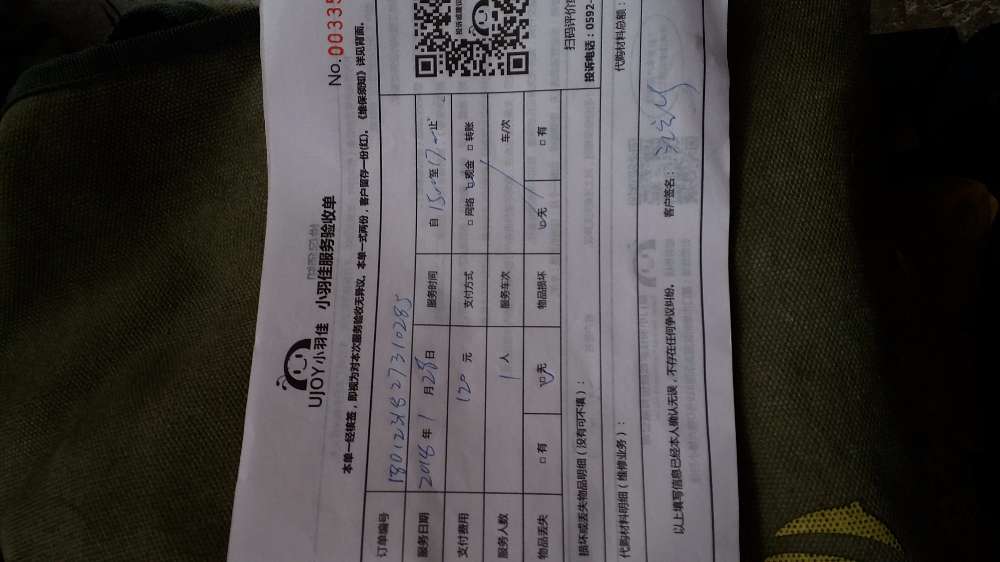 UJOY小羽佳 小羽佳服务验收单
No.00335
本单一经核签，即视为对本次服务验收无异议。本单一式两份，客户留存一份(红)。《维保须知》详见背面。
订单编号 1801231827310285
服务日期 2018年1月28日 服务时间 自1500至17止
支付费用 120元 支付方式 □网络 □现金 □转账
服务人数 1人 服务车次 / 车/次
物品丢失 □有 □无 物品损坏 □无 □有
投诉或建议
扫码评价
投诉电话：0592-
损坏或丢失物品明细（没有可不填）：
代购材料明细（维修业务）： 代购材料总额：
以上填写信息已经本人确认无误，不存在任何争议纠纷。 客户签名：